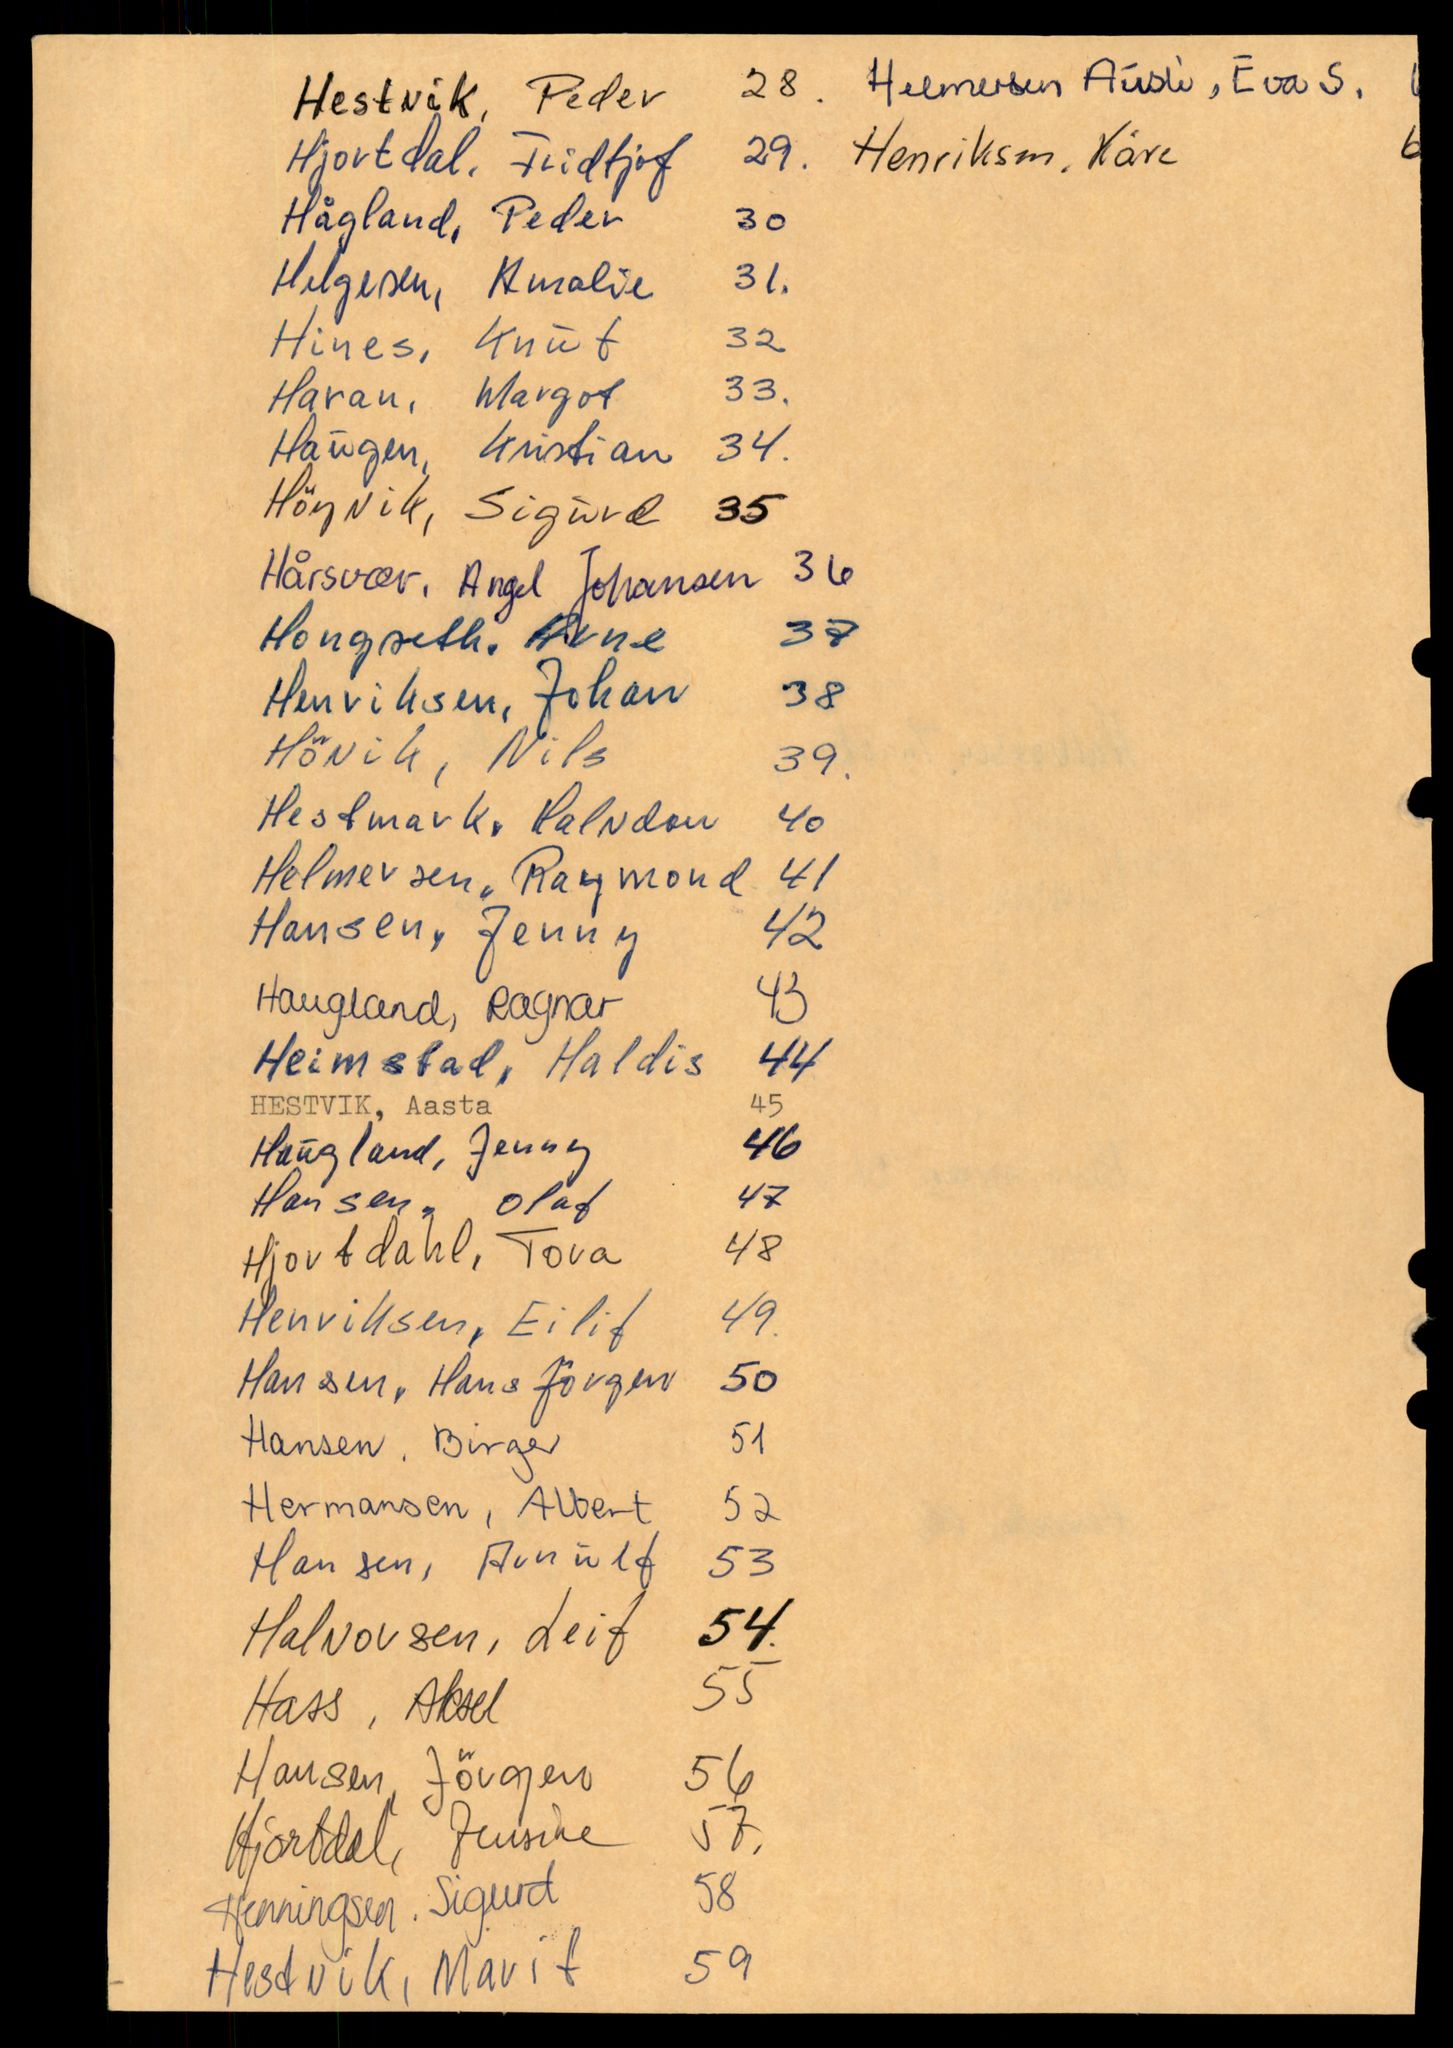 Hestvik, Peder 28.
Hjortdal, Fridtjof 29.
Hågland, Peder 30
Helgesen, Amalie 31.
Hines, Knut 32
Haran, Margot 33.
Haugen, Kristian 34.
Höynvik, Sigurd 35
Hårsvær, Angel Johansen 36
Hongseth. Arne 37
Henriksen, Johan 38
Hövik, Nils 39.
Hestmark, Halvdan 40
Helmersen, Raymond 41
Hansen, Jenny 42
Haugland, Ragnar 43
Heimstad, Haldis 44
HESTVIK, Aasta 45
Haugland, Jenny 46
Hansen, Olaf 47
Hjortdahl, Tora 48
Henriksen, Eilif 49.
Hansen, Hans Jörgen 50
Hansen. Birger 51
Hermansen, Albert 52
Hansen, Arnulf 53
Halvorsen, Leif 54.
Hass, Aksel 55
Hansen, Jörgen 56
Hjortdal, Jensine 57.
Henningsen. Sigurd 58
Hestvik, Marit 59
Helmersen Austli, Eva S.
Henriksen. Kåre 6